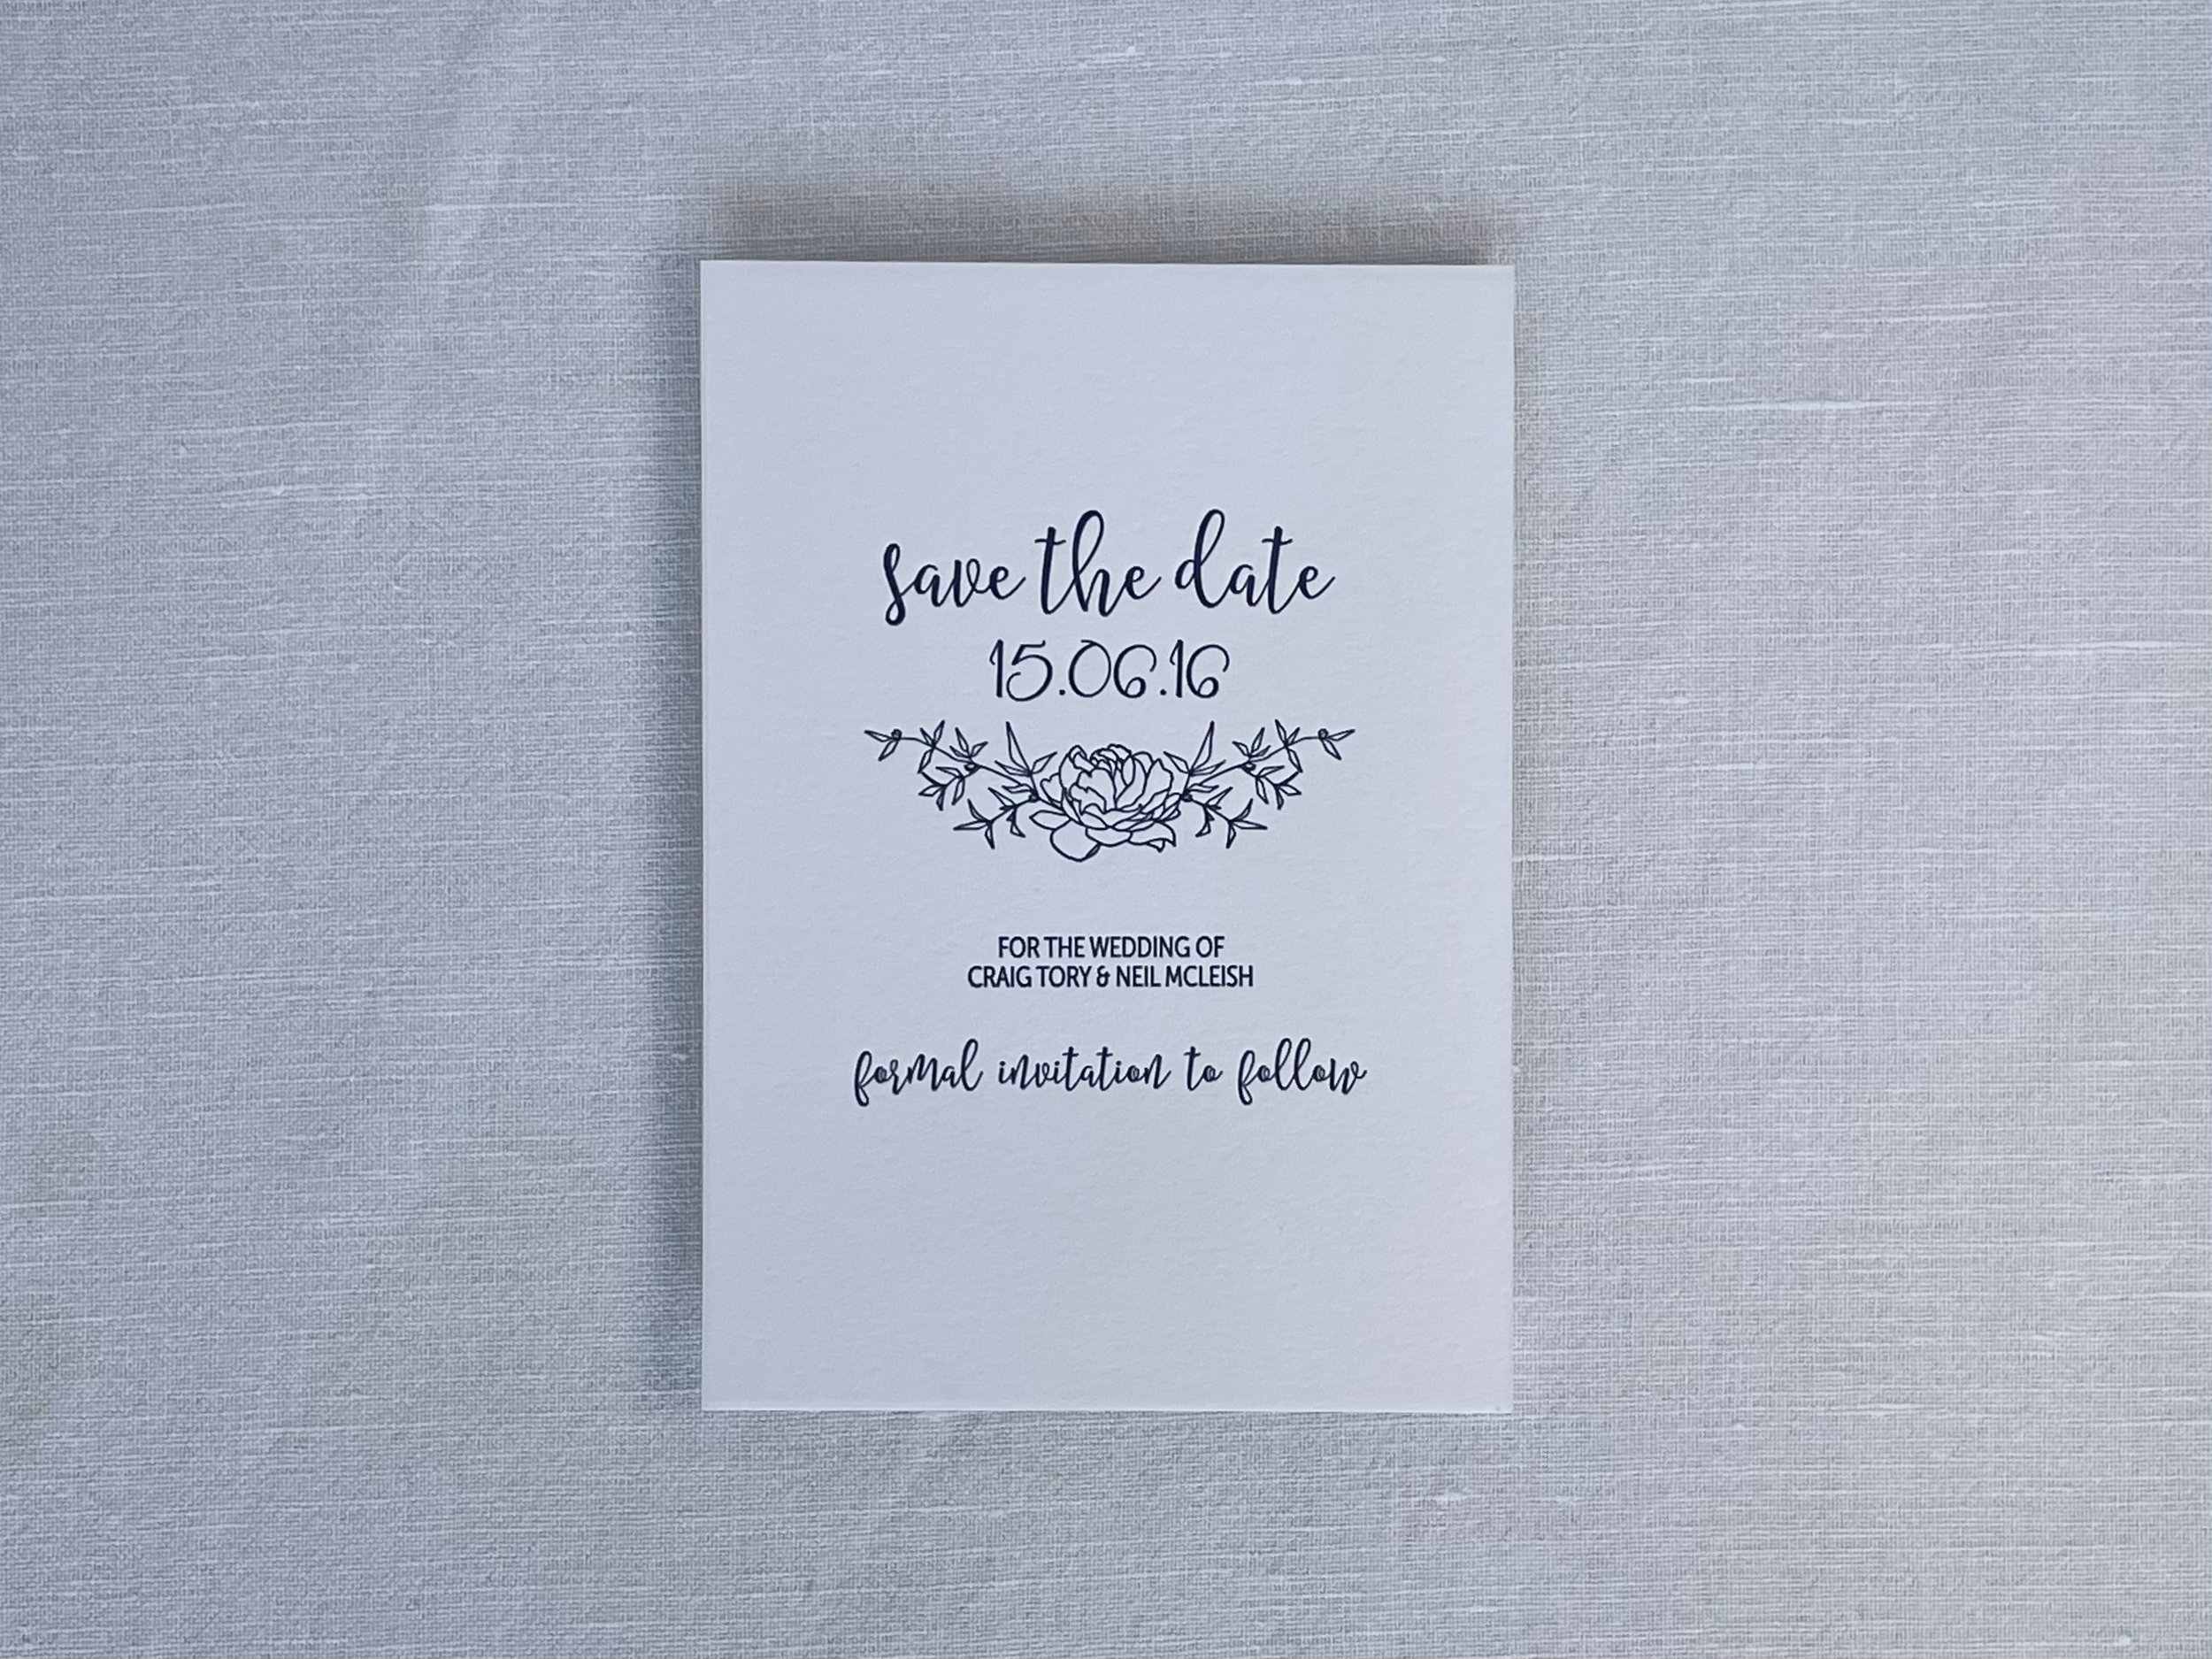 save the date
15.06.16
FOR THE WEDDING OF
CRAIG TORY & NEIL MCLEISH
formal invitation to follow